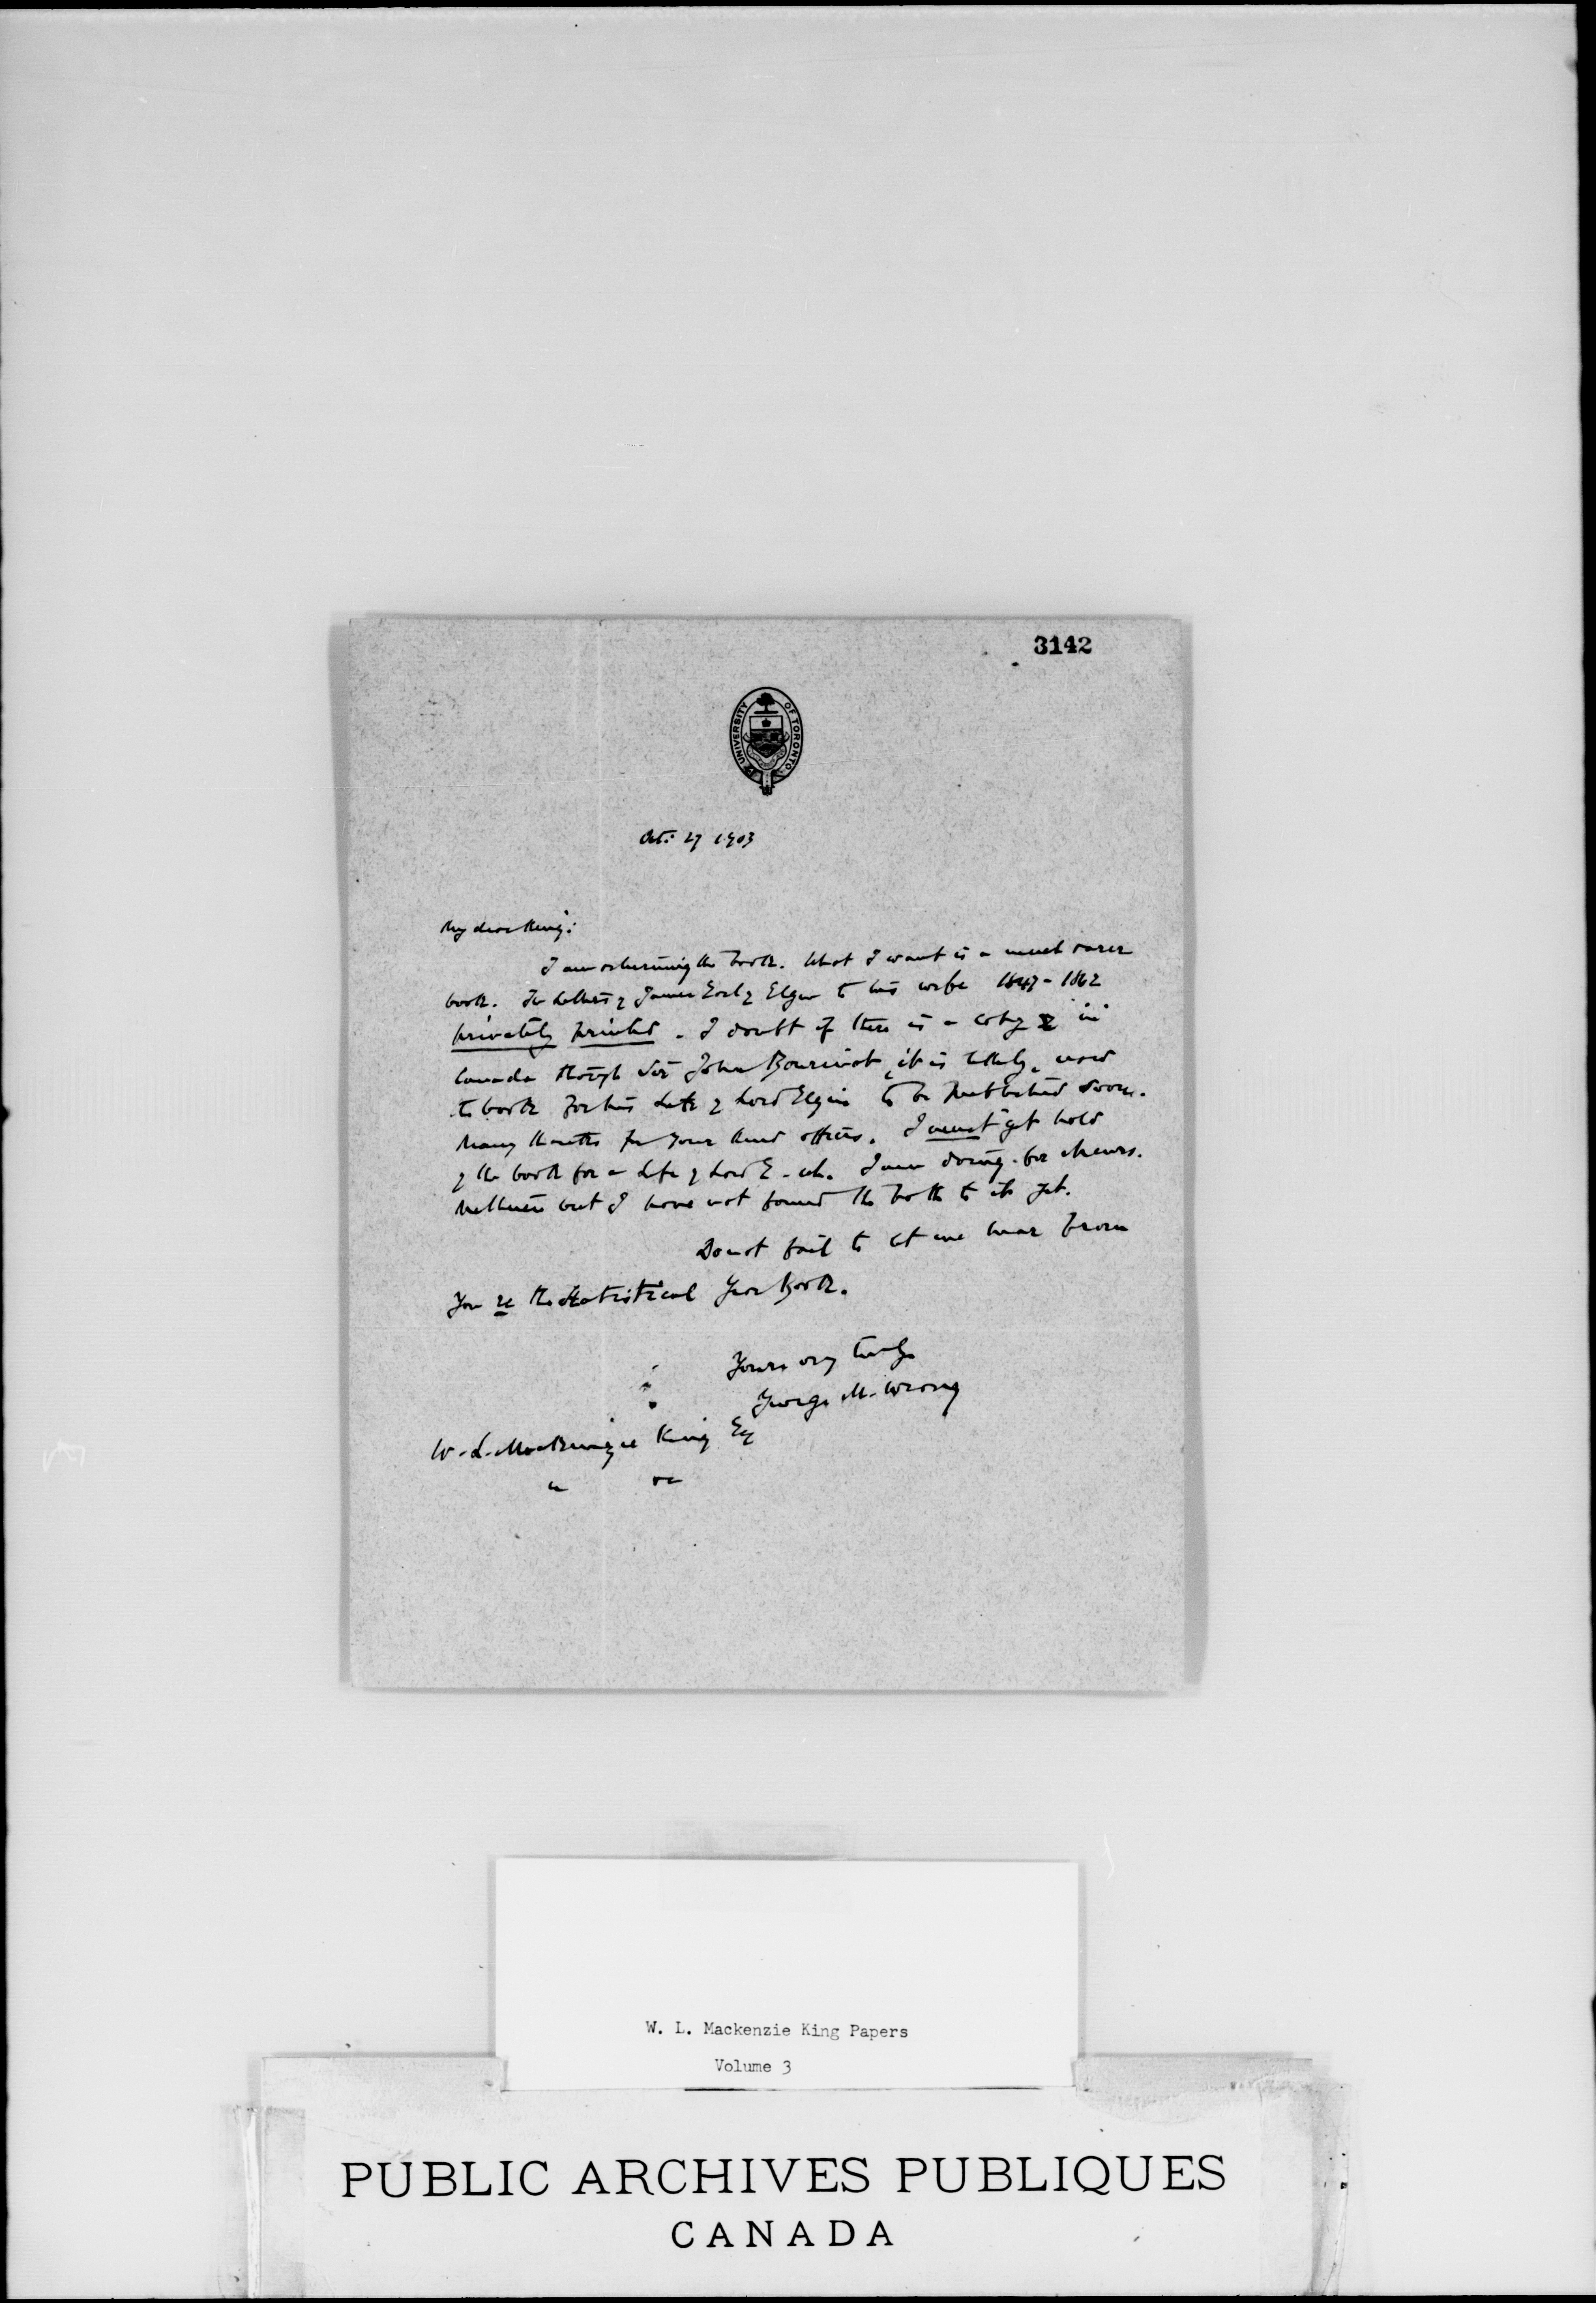 3142
UNIVERSITY OF TORONTO
Oct: 27 1903
My dear King:
I am returning the book. What I want is a much rarer
book. The Letters of James Earl of Elgin to his wife 1847-1862
privately printed. I doubt if there is a copy in
Canada though Sir John Bourinot, it is likely, used
the book for his Life of Lord Elgin to be published soon.
Many thanks for your kind offices. I must get hold
of the book for a Life of Lord E. wh. I am doing for Messrs.
Methuen but I have not found the book to its yet.
Do not fail to let me hear from
You re the Statistical Year Book.
Yours very truly
George M. Wrong
W. L. Mackenzie King Esq
W. L. Mackenzie King Papers
Volume 3
PUBLIC ARCHIVES PUBLIQUES
CANADA